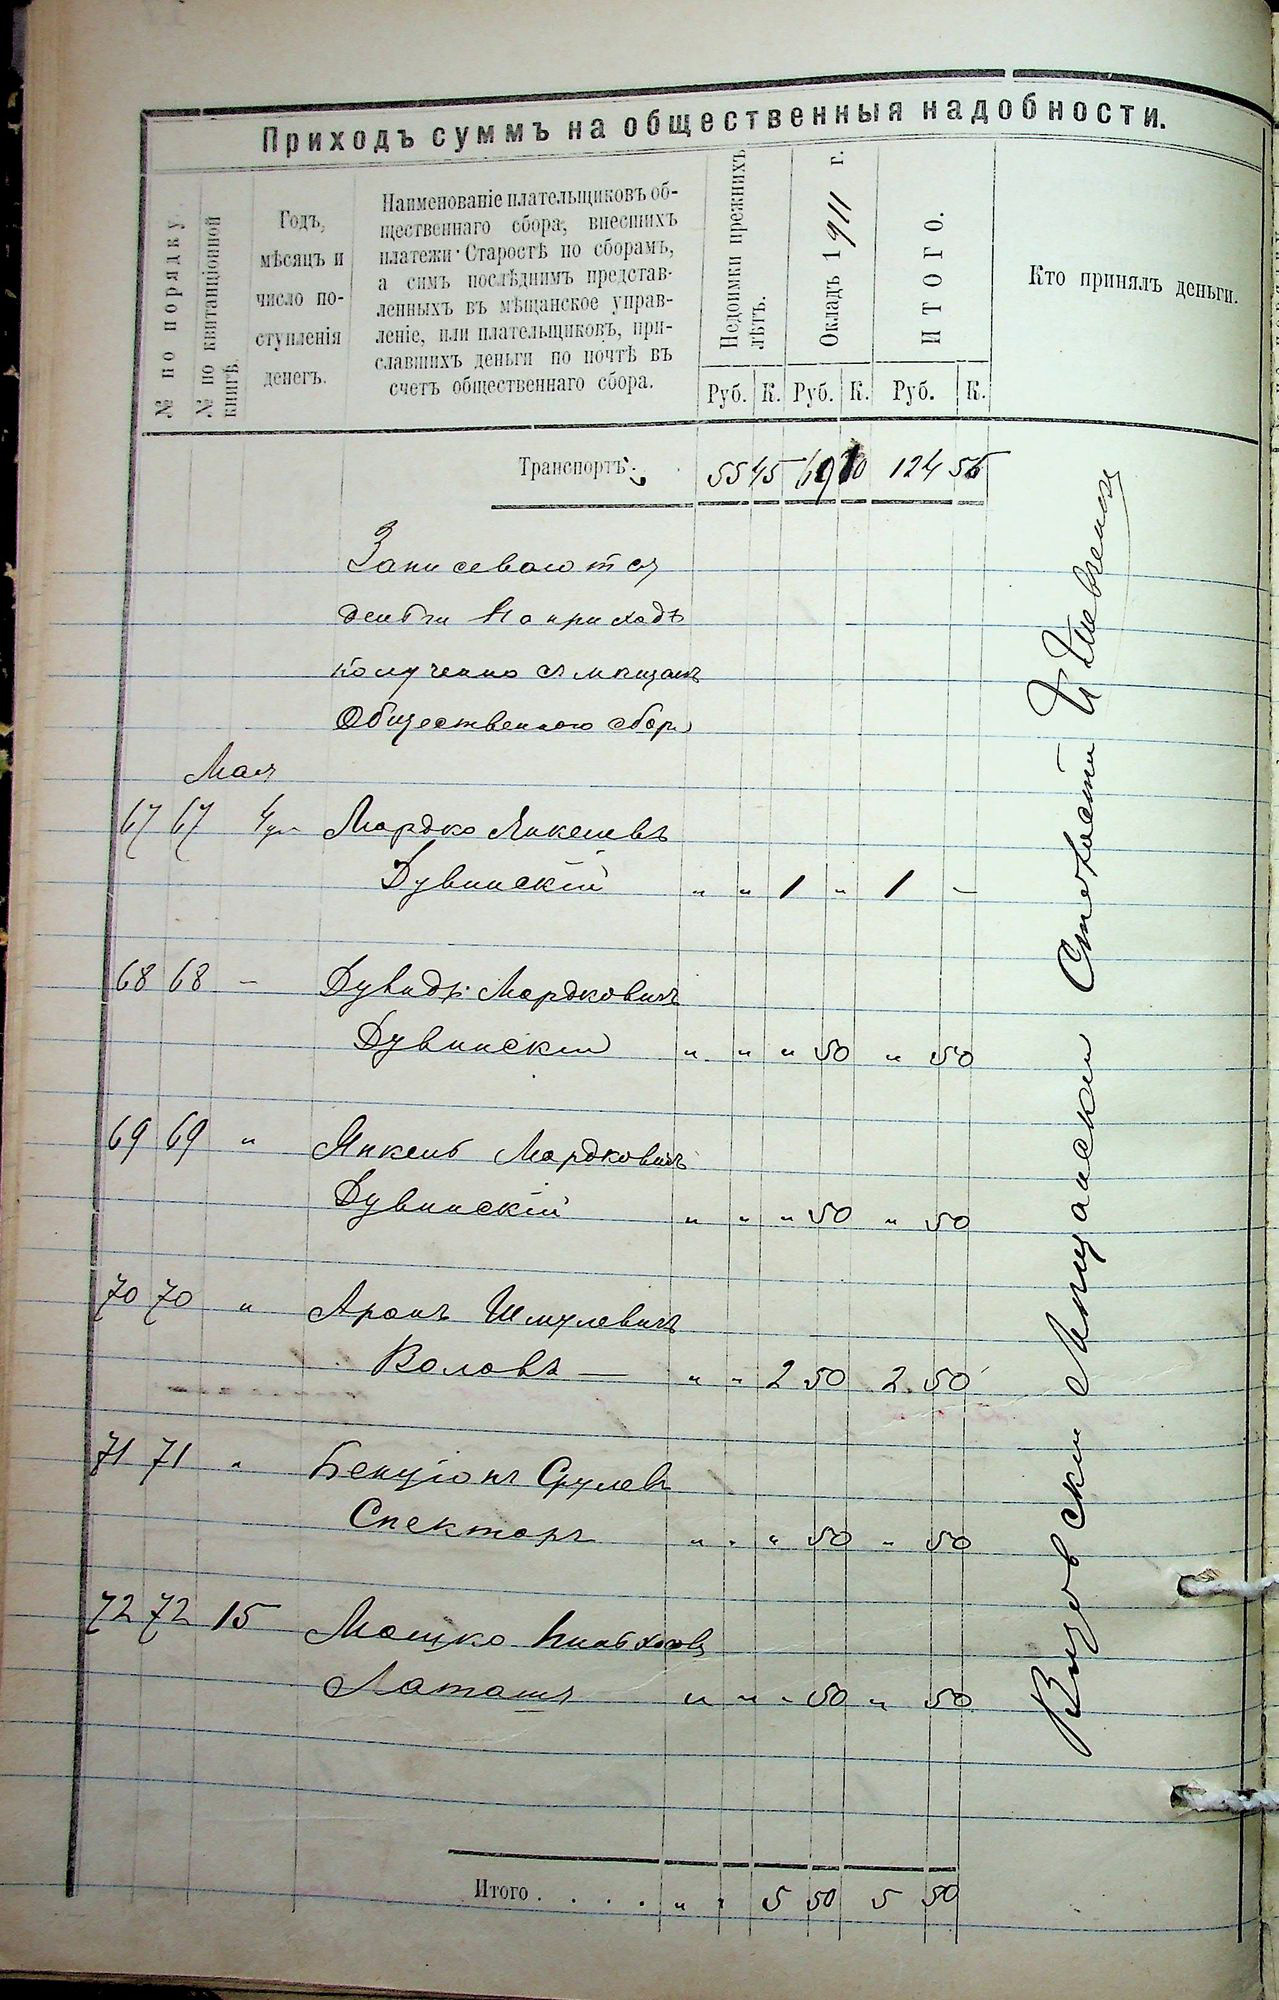 Приходъ суммъ на общественныя надобности.
№ по порядку.
№ по квитанціонной книгѣ.
Годъ,
мѣсяцъ и
число по-
ступленія
денегъ.
Наименованіе плательщиковъ об-
щественнаго сбора, внесшихъ
платежи Старостѣ по сборамъ,
а симъ послѣднимъ представ-
ленныхъ въ мѣщанское управ-
леніе, или плательщиковъ, при-
славшихъ деньги по почтѣ въ
счетъ общественнаго сбора.
Недоимки прежнихъ
лѣтъ.
Окладъ 1911 г.
ИТОГО.
Кто принялъ деньги.
Руб. К. Руб. К. Руб. К.
Транспортъ. 55 45 69 10 124 55
Записеваются
деньги на приходъ
полученно съ мещанъ
Общественного сбора
Мая
67 67 4 Мордко Янкелевъ
Дувинскій " " 1 " 1 –
68 68 – Дувидъ Мордковичъ
Дувинскій " " " 50 " 50
69 69 " Янкель Мордковичъ
Дувинскій " " " 50 " 50
70 70 " Аронъ Шмулевичъ
Воловъ — " " 2 50 2 50
71 71 " Бенціонъ Срулевъ
Спекторъ " " " 50 " 50
72 72 15 Мошко
Латашъ " " " 50 " 50
Мещански Староста
Итого . . . . " " 5 50 5 50